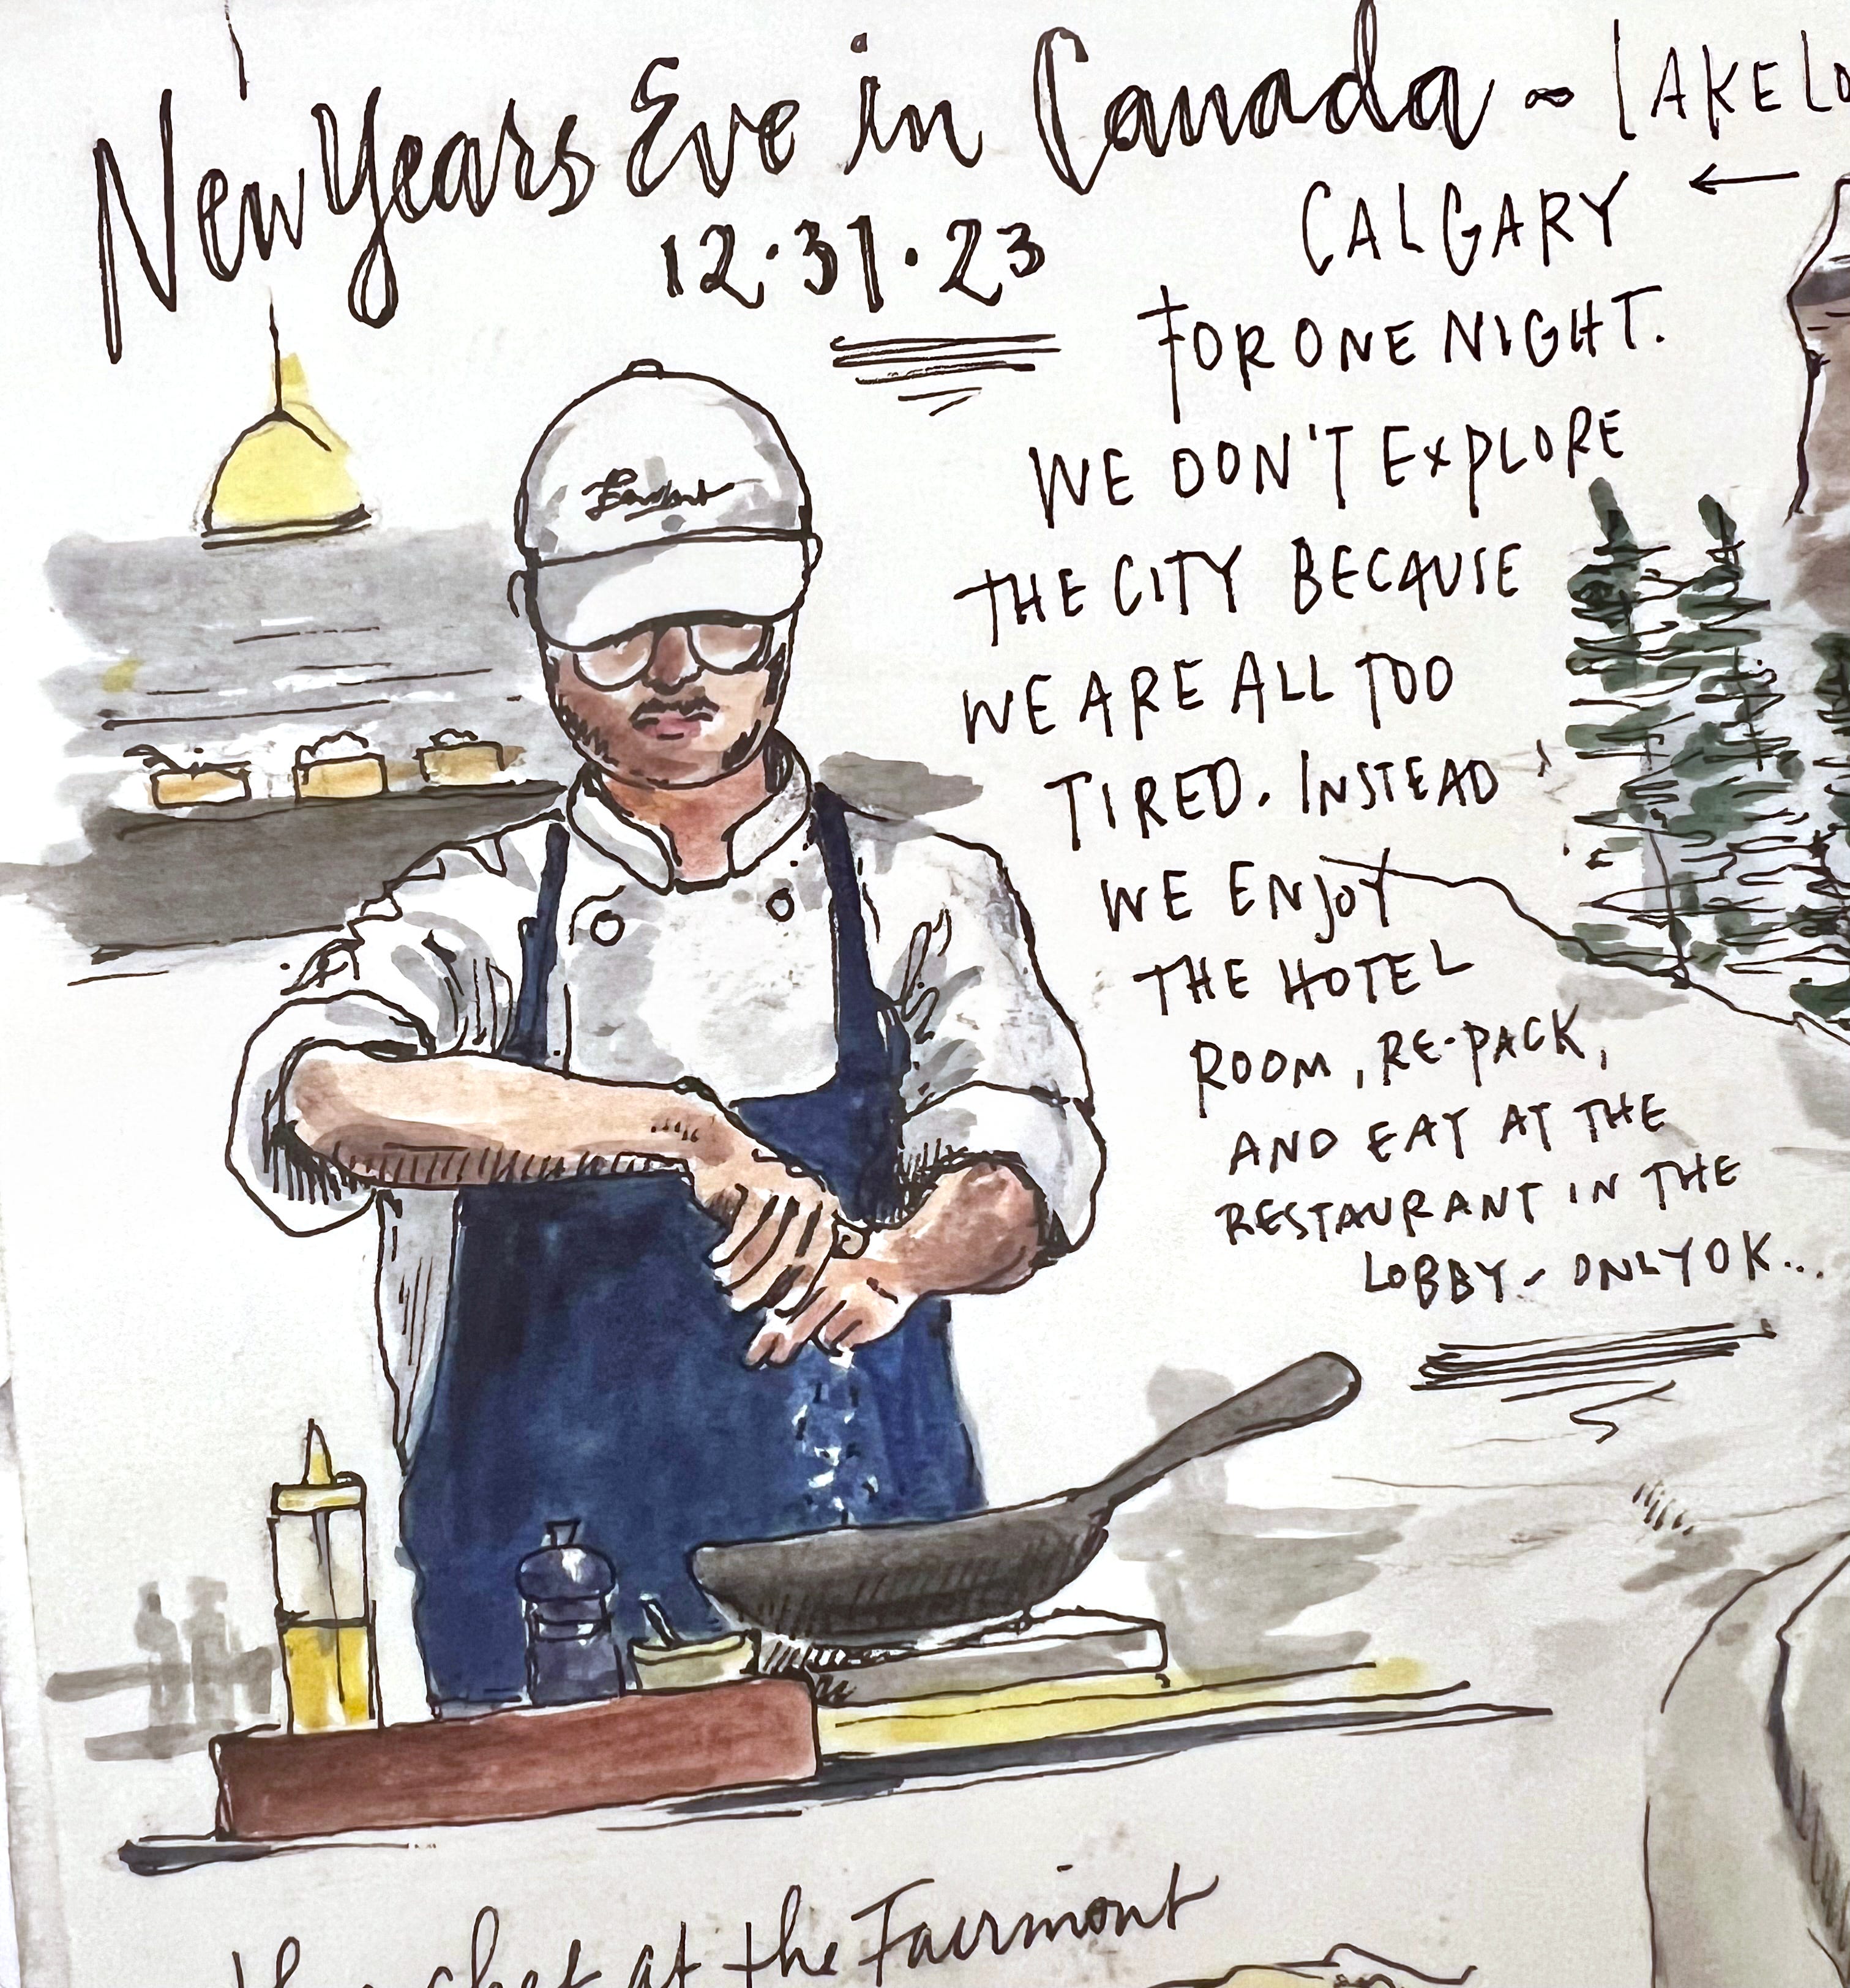 New Years Eve in Canada ~ LAKE LO
12·31·23
←
CALGARY
FOR ONE NIGHT.
WE DON'T EXPLORE
THE CITY BECAUSE
WE ARE ALL TOO
TIRED. INSTEAD
WE ENJOY
THE HOTEL
ROOM, RE-PACK,
AND EAT AT THE
RESTAURANT IN THE
LOBBY ~ ONLY OK...
chef at the Fairmont